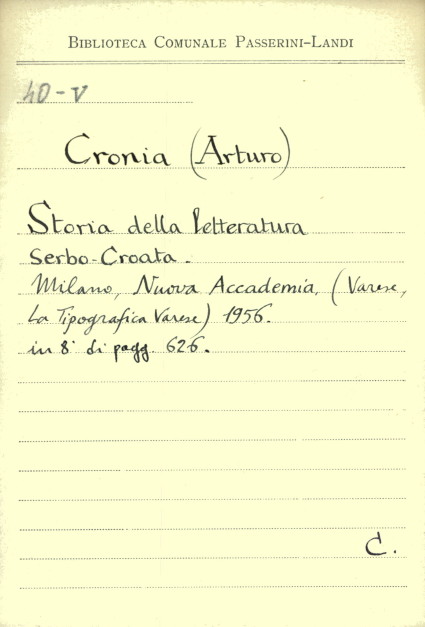 BIBLIOTECA COMUNALE PASSERINI-LANDI
40-V
Cronia (Arturo)
Storia della Letteratura
Serbo-Croata.
Milano, Nuova Accademia, (Varese,
La Tipografica Varese) 1956.
in 8° di pagg. 626.
C.